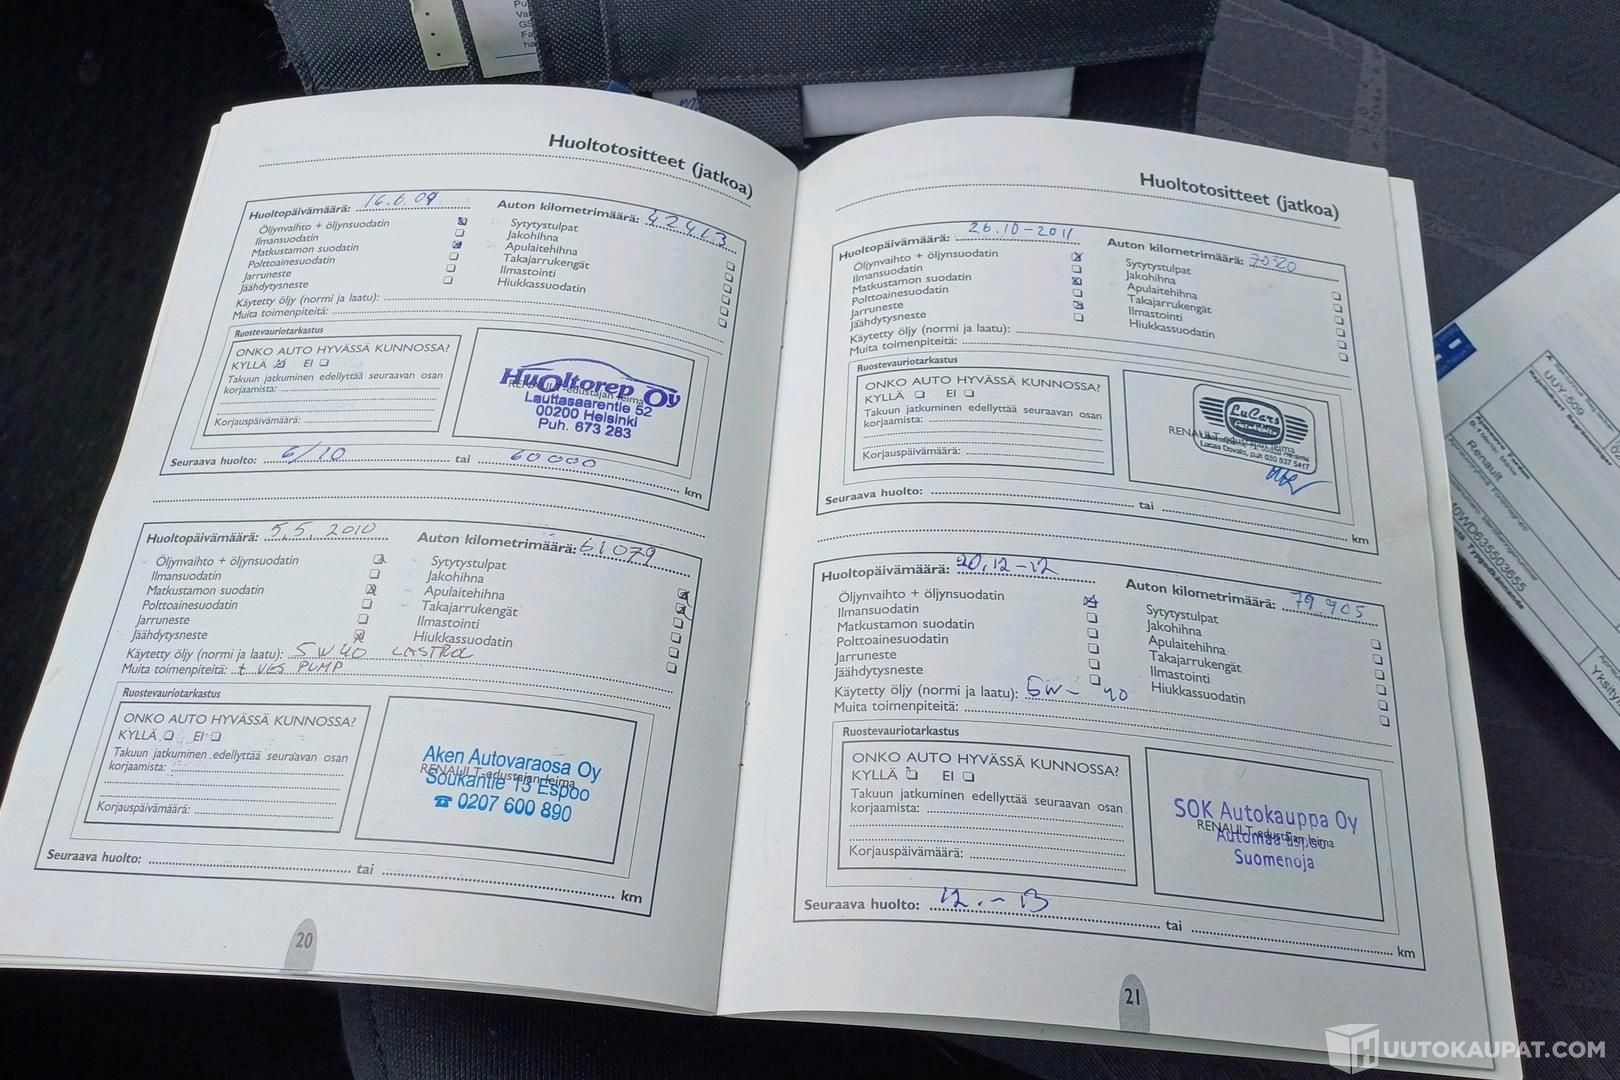 Huoltotositteet (jatkoa)
Huoltopäivämäärä: 16.6.09 Auton kilometrimäärä: 42413
Öljynvaihto + öljynsuodatin Sytytystulpat
Ilmansuodatin Jakohihna
Matkustamon suodatin Apulaitehihna
Polttoainesuodatin Takajarrukengät
Jarruneste Ilmastointi
Jäähdytysneste Hiukkassuodatin
Käytetty öljy (normi ja laatu):
Muita toimenpiteitä:
Ruostevauriotarkastus
ONKO AUTO HYVÄSSÄ KUNNOSSA?
KYLLÄ EI
Takuun jatkuminen edellyttää seuraavan osan
korjaamista:
Korjauspäivämäärä:
HuOltorep Oy
RENAULT-edustajan leima
Lauttasaarentie 52
00200 Helsinki
Puh. 673 283
Seuraava huolto: 6/10 tai 60000 km
Huoltopäivämäärä: 5.5. 2010 Auton kilometrimäärä: 61079
Öljynvaihto + öljynsuodatin Sytytystulpat
Ilmansuodatin Jakohihna
Matkustamon suodatin Apulaitehihna
Polttoainesuodatin Takajarrukengät
Jarruneste Ilmastointi
Jäähdytysneste Hiukkassuodatin
Käytetty öljy (normi ja laatu): 5W40 CASTROL
Muita toimenpiteitä: + VES PUMP
Ruostevauriotarkastus
ONKO AUTO HYVÄSSÄ KUNNOSSA?
KYLLÄ EI
Takuun jatkuminen edellyttää seuraavan osan
korjaamista:
Korjauspäivämäärä:
Aken Autovaraosa Oy
RENAULT-edustajan leima
Soukantie 13 Espoo
☎ 0207 600 890
Seuraava huolto: tai km
20
Huoltotositteet (jatkoa)
Huoltopäivämäärä: 26.10-2011 Auton kilometrimäärä: 70320
Öljynvaihto + öljynsuodatin Sytytystulpat
Ilmansuodatin Jakohihna
Matkustamon suodatin Apulaitehihna
Polttoainesuodatin Takajarrukengät
Jarruneste Ilmastointi
Jäähdytysneste Hiukkassuodatin
Käytetty öljy (normi ja laatu):
Muita toimenpiteitä:
Ruostevauriotarkastus
ONKO AUTO HYVÄSSÄ KUNNOSSA?
KYLLÄ EI
Takuun jatkuminen edellyttää seuraavan osan
korjaamista:
Korjauspäivämäärä:
LuCars
Autohuolto
RENAULT-edustajan leima
Lucas Dovalo, puh 050 537 5417
Seuraava huolto: tai km
Huoltopäivämäärä: 20.12-12 Auton kilometrimäärä: 79905
Öljynvaihto + öljynsuodatin Sytytystulpat
Ilmansuodatin Jakohihna
Matkustamon suodatin Apulaitehihna
Polttoainesuodatin Takajarrukengät
Jarruneste Ilmastointi
Jäähdytysneste Hiukkassuodatin
Käytetty öljy (normi ja laatu): 5W-40
Muita toimenpiteitä:
Ruostevauriotarkastus
ONKO AUTO HYVÄSSÄ KUNNOSSA?
KYLLÄ EI
Takuun jatkuminen edellyttää seuraavan osan
korjaamista:
Korjauspäivämäärä:
SOK Autokauppa Oy
RENAULT-edustajan leima
Automaa Espoo
Suomenoja
Seuraava huolto: 12.-13 tai km
21
UUY-509
Renault
Yksityi
HUUTOKAUPAT.COM